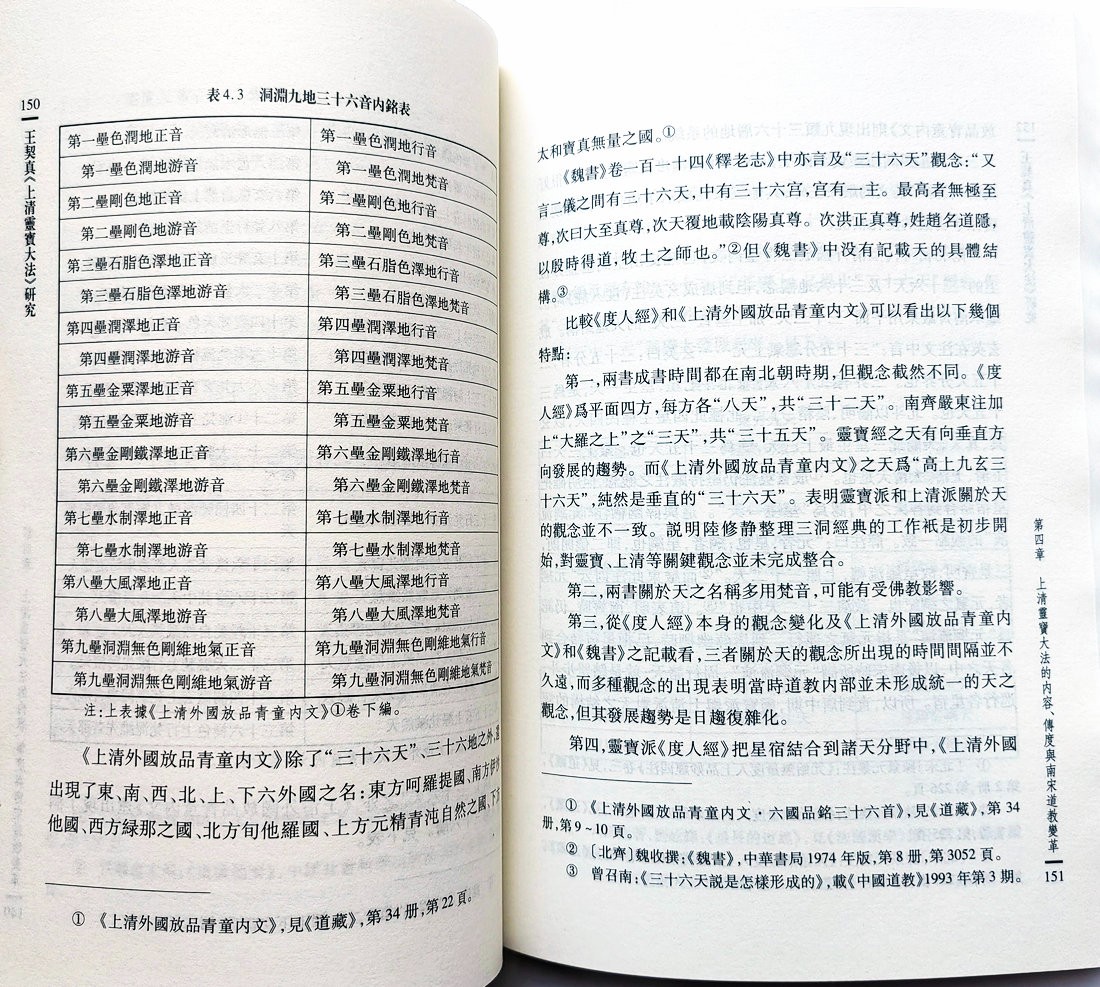 150
王契真《上清靈寶大法》研究
表 4.3 洞淵九地三十六音内銘表
第一壘色潤地正音 第一壘色潤地行音
第一壘色潤地游音 第一壘色潤地梵音
第二壘剛色地正音 第二壘剛色地行音
第二壘剛色地游音 第二壘剛色地梵音
第三壘石脂色澤地正音 第三壘石脂色澤地行音
第三壘石脂色澤地游音 第三壘石脂色澤地梵音
第四壘潤澤地正音 第四壘潤澤地行音
第四壘潤澤地游音 第四壘潤澤地梵音
第五壘金粟澤地正音 第五壘金粟地行音
第五壘金粟地游音 第五壘金粟地梵音
第六壘金剛鐵澤地正音 第六壘金剛鐵澤地行音
第六壘金剛鐵澤地游音 第六壘金剛鐵澤地梵音
第七壘水制澤地正音 第七壘水制澤地行音
第七壘水制澤地游音 第七壘水制澤地梵音
第八壘大風澤地正音 第八壘大風澤地行音
第八壘大風澤地游音 第八壘大風澤地梵音
第九壘洞淵無色剛維地氣正音 第九壘洞淵無色剛維地氣行音
第九壘洞淵無色剛維地氣游音 第九壘洞淵無色剛維地氣梵音
注：上表據《上清外國放品青童内文》①卷下編。
《上清外國放品青童内文》除了“三十六天”、三十六地之外，還
出現了東、南、西、北、上、下六外國之名：東方呵羅提國、南方伊沙
他國、西方緑那之國、北方旬他羅國、上方元精青沌自然之國、下方
① 《上清外國放品青童内文》，見《道藏》，第 34 册，第 22 頁。
太和寶真無量之國。①
《魏書》卷一百一十四《釋老志》中亦言及“三十六天”觀念：“又
言二儀之間有三十六天，中有三十六宫，宫有一主。最高者無極至
尊，次曰大至真尊，次天覆地載陰陽真尊。次洪正真尊，姓趙名道隱，
以殷時得道，牧土之師也。”②但《魏書》中没有記載天的具體結
構。③
比較《度人經》和《上清外國放品青童内文》可以看出以下幾個
特點：
第一，兩書成書時間都在南北朝時期，但觀念截然不同。《度
人經》爲平面四方，每方各“八天”，共“三十二天”。南齊嚴東注加
上“大羅之上”之“三天”，共“三十五天”。靈寶經之天有向垂直方
向發展的趨勢。而《上清外國放品青童内文》之天爲“高上九玄三
十六天”，純然是垂直的“三十六天”。表明靈寶派和上清派關於天
的觀念並不一致。説明陸修静整理三洞經典的工作衹是初步開
始，對靈寶、上清等關鍵觀念並未完成整合。
第二，兩書關於天之名稱多用梵音，可能有受佛教影響。
第三，從《度人經》本身的觀念變化及《上清外國放品青童内
文》和《魏書》之記載看，三者關於天的觀念所出現的時間間隔並不
久遠，而多種觀念的出現表明當時道教内部並未形成統一的天之
觀念，但其發展趨勢是日趨復雜化。
第四，靈寶派《度人經》把星宿結合到諸天分野中，《上清外國
① 《上清外國放品青童内文·六國品銘三十六首》，見《道藏》，第 34
册，第 9～10 頁。
② 〔北齊〕魏收撰：《魏書》，中華書局 1974 年版，第 8 册，第 3052 頁。
③ 曾召南：《三十六天説是怎樣形成的》，載《中國道教》1993 年第 3 期。
第四章 上清靈寶大法的内容、傳度與南宋道教變革
151